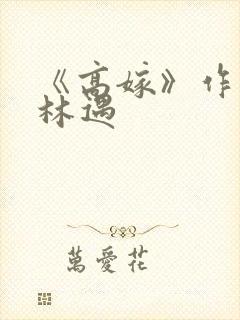 《高嫁》作
林遇
萬愛花